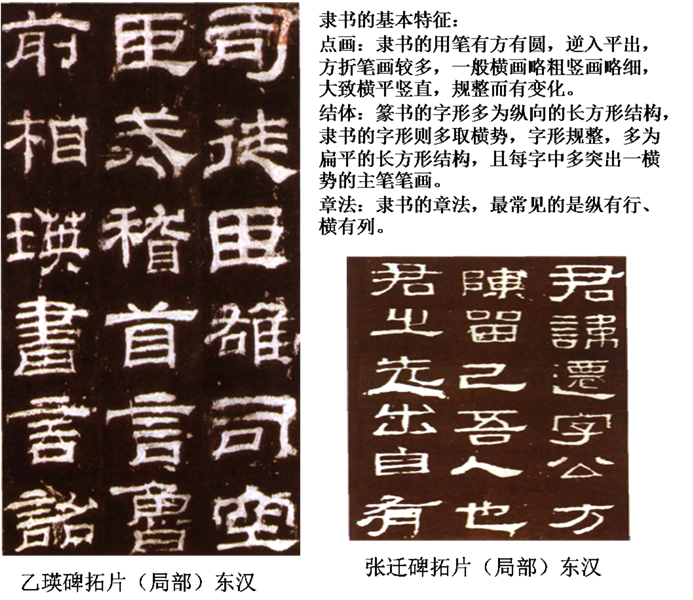 司徒臣雄司空
臣戒稽首言魯
前相瑛書言詔
乙瑛碑拓片（局部）东汉
隶书的基本特征：
点画：隶书的用笔有方有圆，逆入平出，
方折笔画较多，一般横画略粗竖画略细，
大致横平竖直，规整而有变化。
结体：篆书的字形多为纵向的长方形结构，
隶书的字形则多取横势，字形规整，多为
扁平的长方形结构，且每字中多突出一横
势的主笔笔画。
章法：隶书的章法，最常见的是纵有行、
横有列。
君諱遷字公方
陳留己吾人也
君之先出自有
张迁碑拓片（局部）东汉